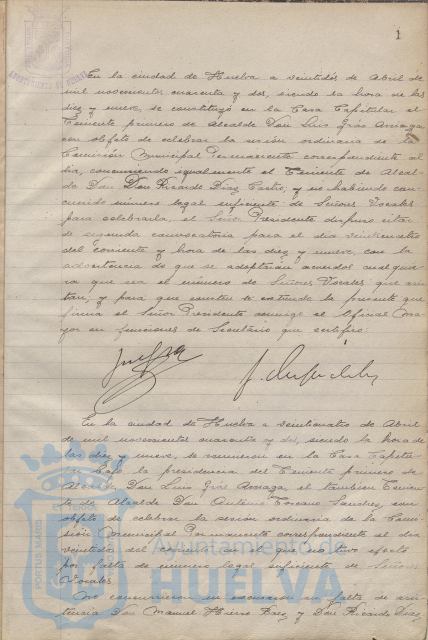 1
En la ciudad de Huelva a veintidós de Abril de
mil novecientos cuarenta y dos, siendo la hora de las
diez y nueve, se constituyó en la Casa Capitular el
Teniente primero de Alcalde Don Luis
con objeto de celebrar la sesión ordinaria de la
Comisión Municipal Permanente correspondiente al
día, concurriendo igualmente el Teniente de Alcal-
de Don Ricardo Díaz Castro, y no habiendo con-
currido número legal suficiente de Señores Vocales
para celebrarla, el Señor Presidente dispuso citar
de segunda convocatoria para el día veinticuatro
del corriente y hora de las diez y nueve, con la
advertencia de que se adoptarán acuerdos cualquie-
ra que sea el número de Señores Vocales que asis-
tan; y para que conste se extiende la presente que
firma el Señor Presidente conmigo el Oficial Ma-
yor en funciones de Secretario que certifico:
En la ciudad de Huelva a veinticuatro de Abril
de mil novecientos cuarenta y dos, siendo la hora de
las diez y nueve, se reunieron en la Casa Capitu-
lar bajo la presidencia del Teniente primero de
Alcalde, Don Luis el también Tenien-
te de Alcalde Don Antonio Toscano Sánchez, con
objeto de celebrar la sesión ordinaria de la Comi-
sión Municipal Permanente correspondiente al día
veintidós del corriente en el que no tuvo efecto
por falta de número legal suficiente de Señores
Vocales.
No concurrieron
tencia Don Manuel Hierro y Don Ricardo Díaz
Ayuntamiento de
HUELVA
PORTUS MARIS